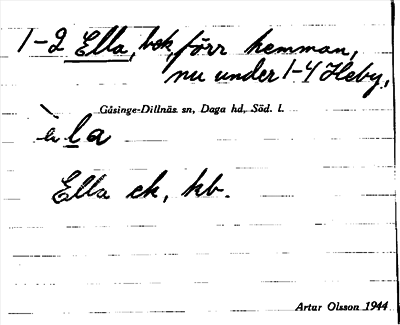 1-2 Ella, bek, förr hemman,
nu under 1-4 Heby,
Gåsinge-Dillnäs sn, Daga hd, Söd. l.
èla
Ella ek, kb.
Artur Olsson 1944